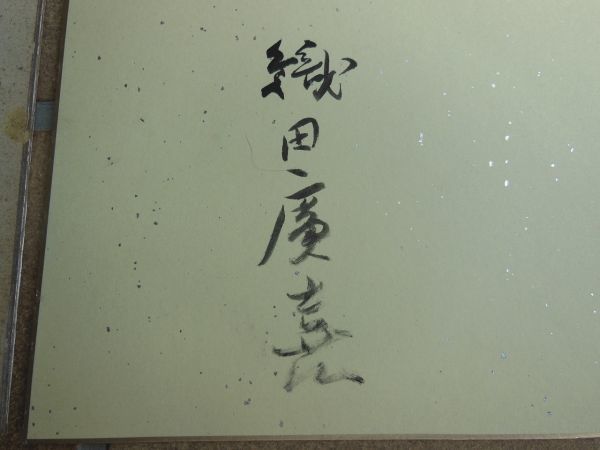 織田廣喜